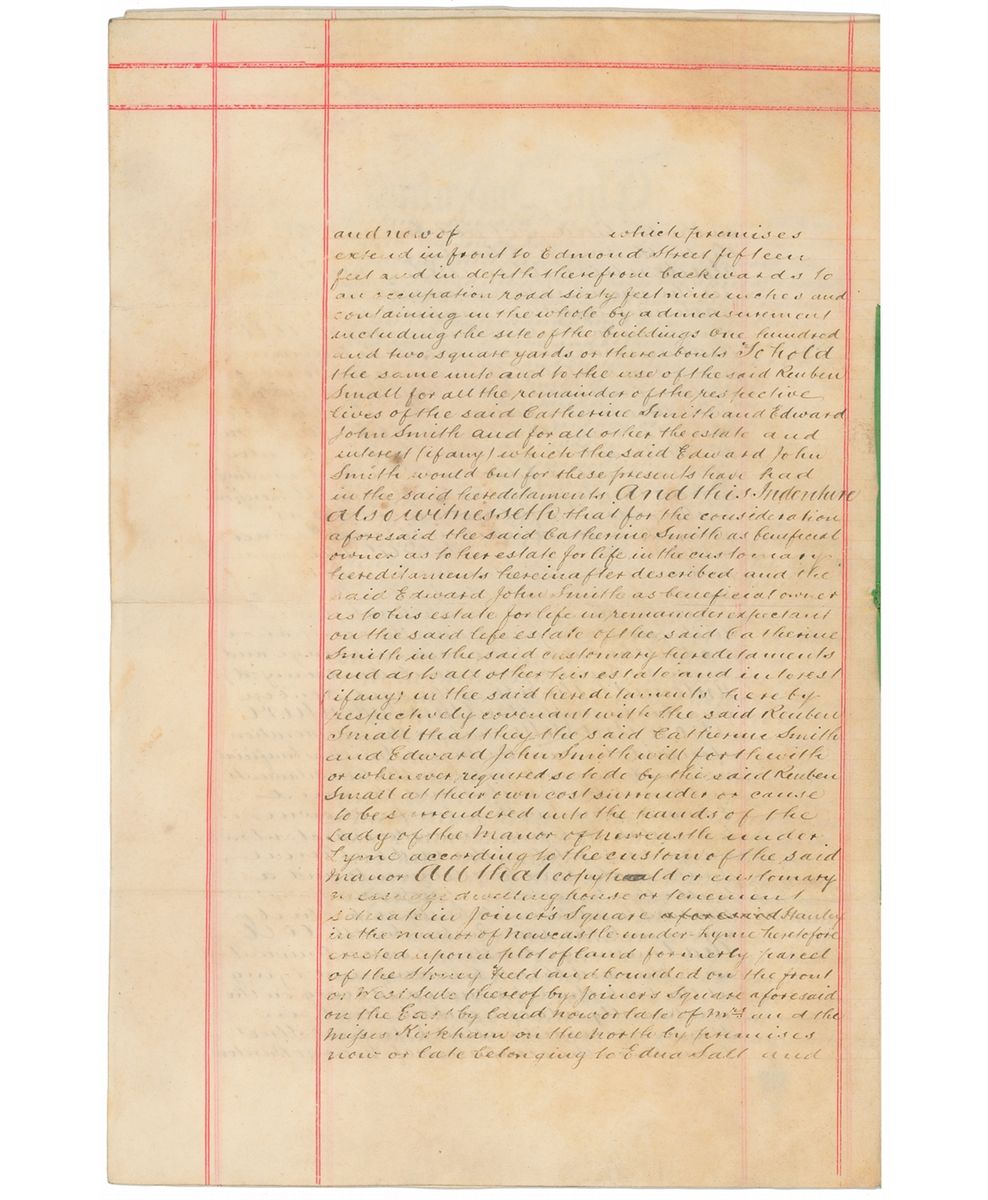 and now of which premises
extend in front to Edmond Street fifteen
feet and in depth therefrom backwards to
an occupation road sixty feet nine inches and
containing in the whole by admeasurement
including the site of the buildings One hundred
and two square yards or thereabouts To hold
the same unto and to the use of the said Reuben
Small for all the remainder of the respective
lives of the said Catherine Smith and Edward
John Smith and for all other the estate and
interest (if any) which the said Edward John
Smith would but for these presents have had
in the said hereditaments And this Indenture
also witnesseth that for the consideration
aforesaid the said Catherine Smith as beneficial
owner as to her estate for life in the customary
hereditaments hereinafter described and the
said Edward John Smith as beneficial owner
as to his estate for life in remainder expectant
on the said life estate of the said Catherine
Smith in the said customary hereditaments
and as to all other his estate and interest
(if any) in the said hereditaments hereby
respectively covenant with the said Reuben
Small that they the said Catherine Smith
and Edward John Smith will forthwith
or whenever required so to do by the said Reuben
Small at their own cost surrender or cause
to be surrendered into the hands of the
Lady of the Manor of Newcastle under
Lyme according to the custom of the said
Manor All that copyhold or customary
messuage dwelling house or tenement
situate in Joiner's Square aforesaid Hanley
in the Manor of Newcastle-under-Lyme heretofore
erected upon a plot of land formerly parcel
of the Stoney Field and bounded on the front
or West Side thereof by Joiner's Square aforesaid
on the East by land now or late of Mrs and the
Misses Kirkham on the North by premises
now or late belonging to Edna Salt and